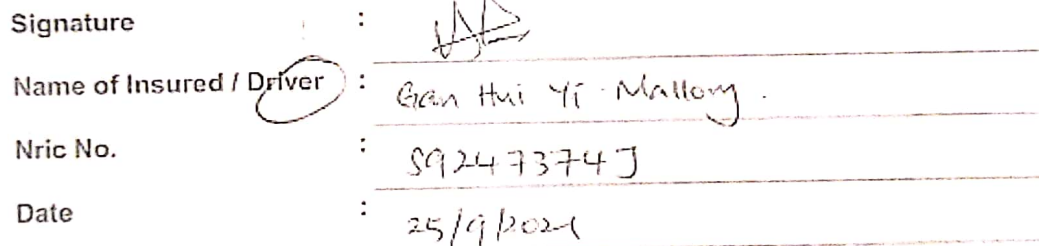 Signature :
Name of Insured / Driver : Gan Hui Yi Mallory.
Nric No. : S9247374J
Date : 25/9/2021